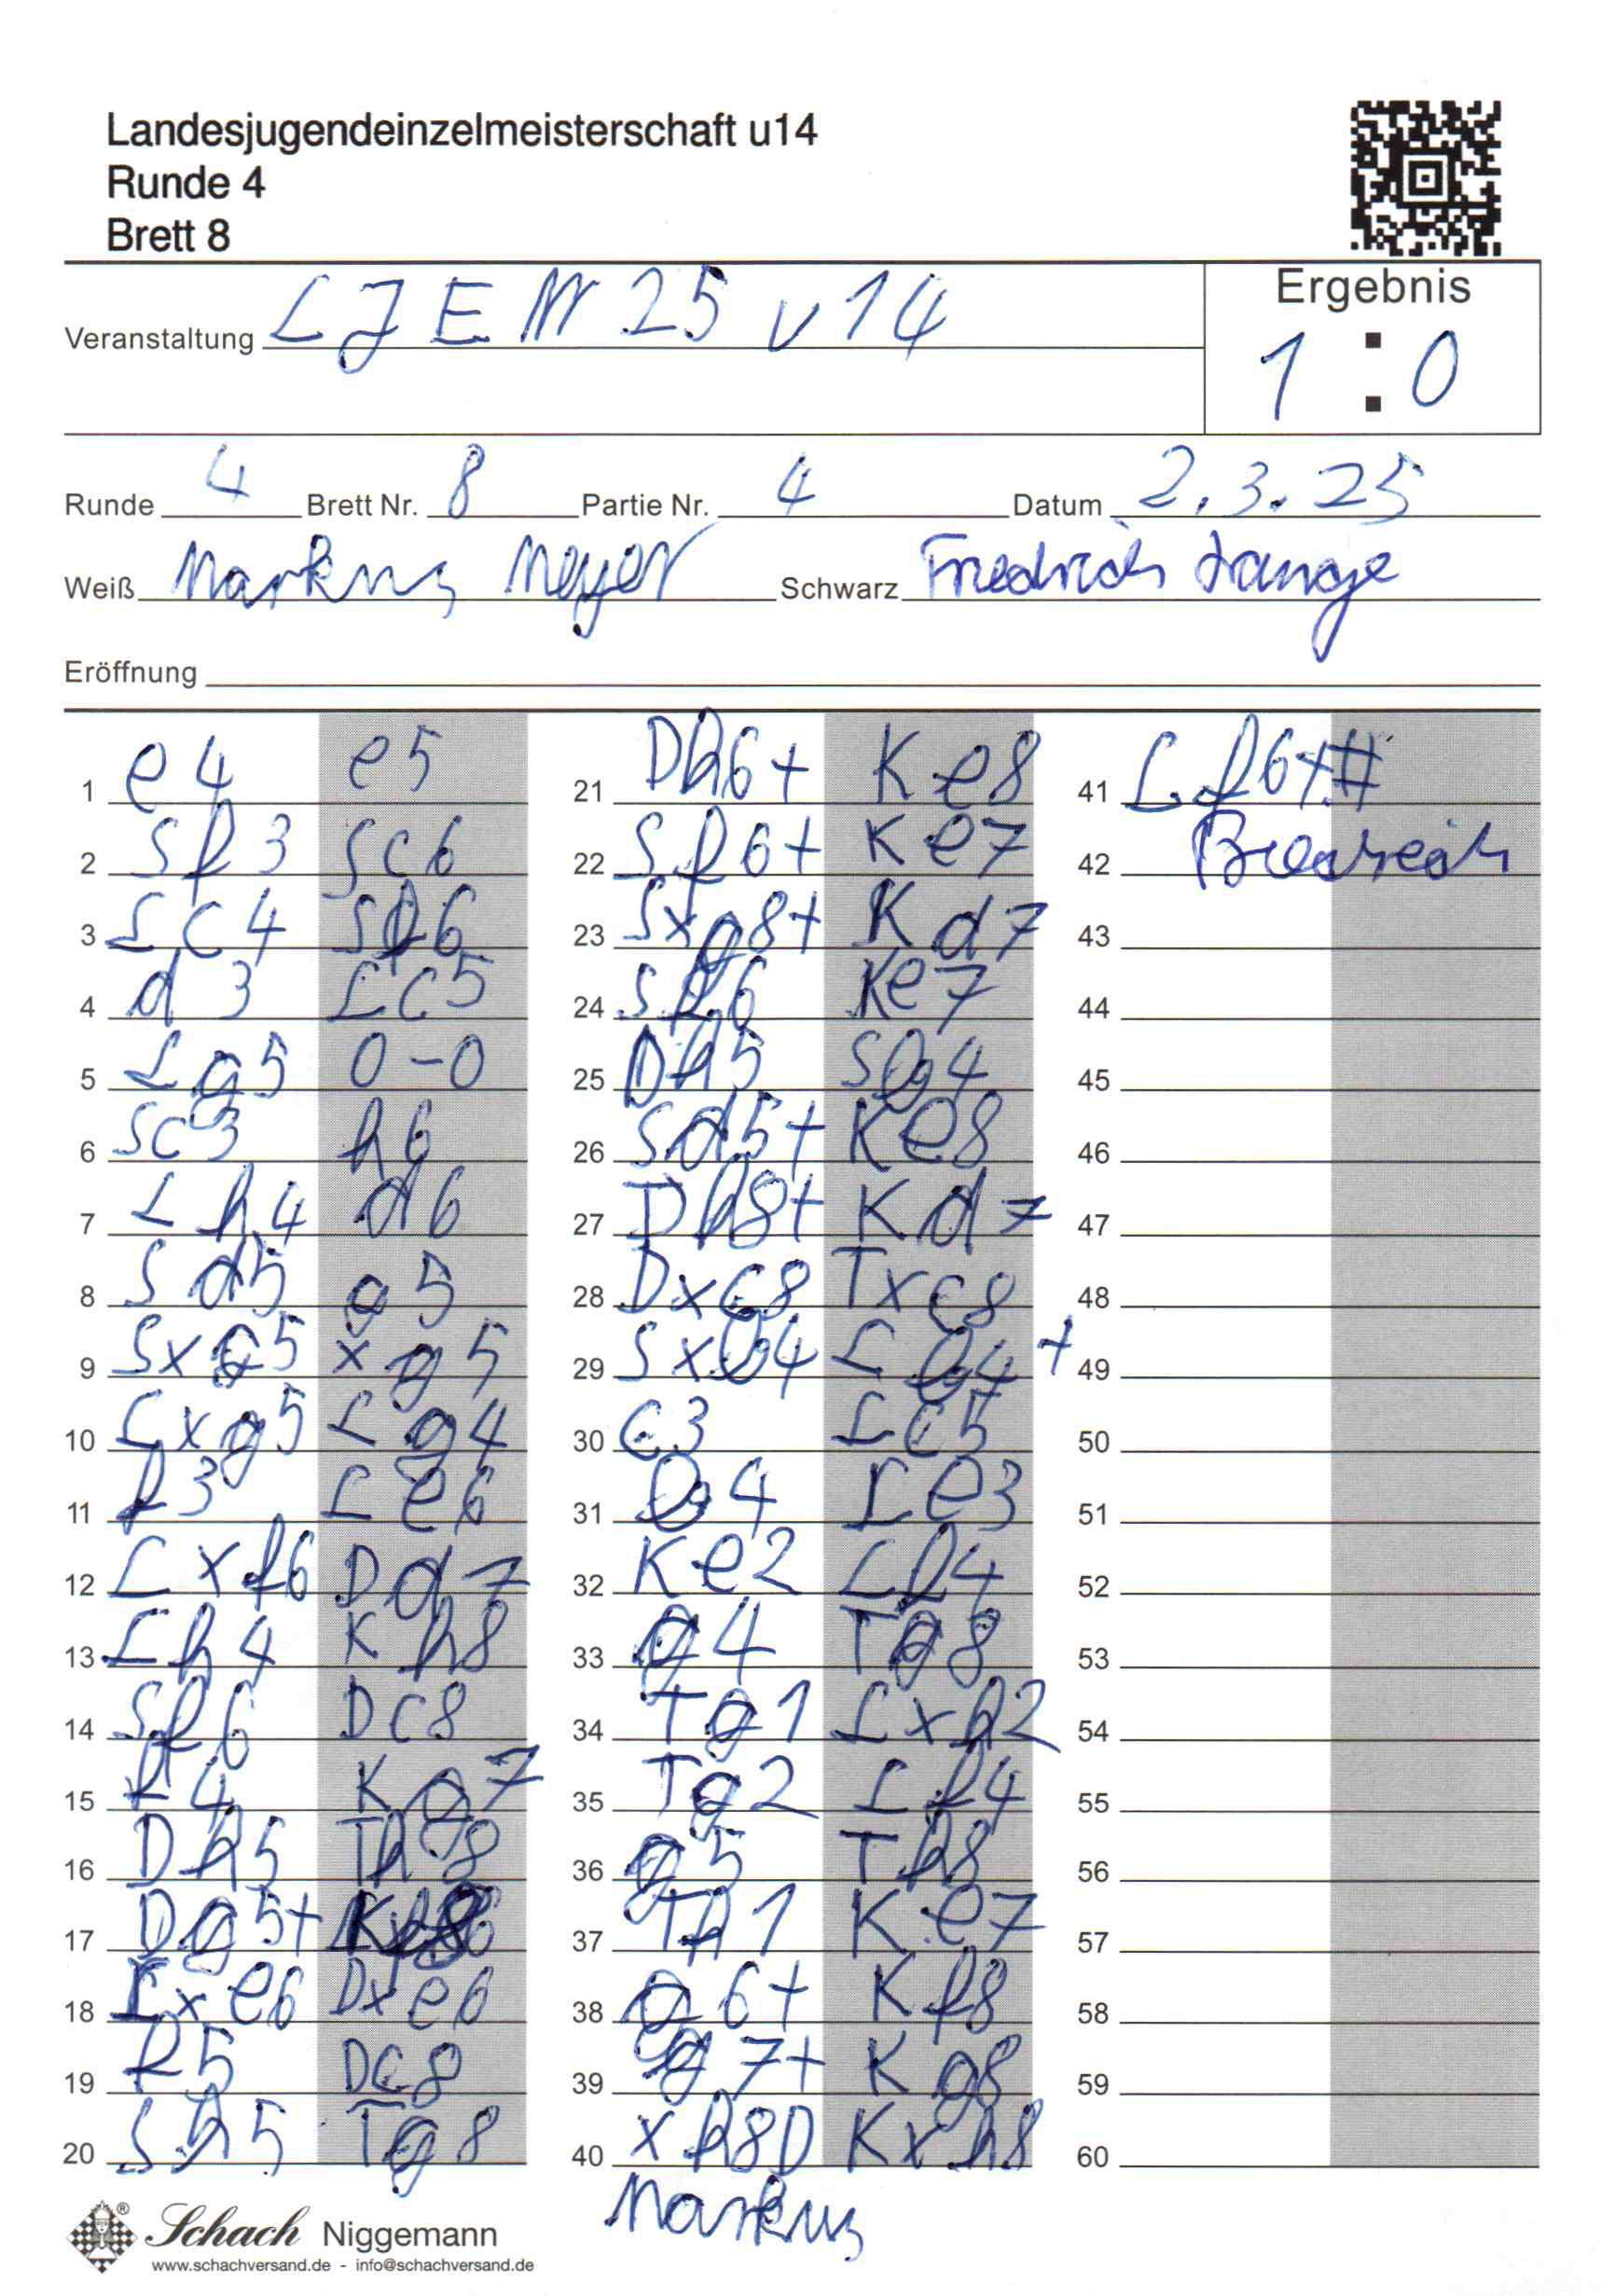 Landesjugendeinzelmeisterschaft u14
Runde 4
Brett 8
Veranstaltung LJEM 25 u14
Ergebnis
1 : 0
Runde 4 Brett Nr. 8 Partie Nr. 4 Datum 2.3.25
Weiß Markus Meyer Schwarz Friedrich Lange
Eröffnung
1 e4 e5
2 Sf3 Sc6
3 Lc4 Sf6
4 d3 Lc5
5 Lg5 0-0
6 Sc3 h6
7 Lh4 d6
8 Sd5 g5
9 Sxg5 xg5
10 Lxg5 Lg4
11 f3 Le6
12 Lxf6 Dd7
13 Lh4 Kh8
14 Sf6 Dc8
15 f4 Kg7
16 Dh5 Th8
17 Dg5+
18 Lxe6 Dxe6
19 f5 Dc8
20 Sh5 Tg8
21 Dh6+ Ke8
22 Sf6+ Ke7
23 Sxg8+ Kd7
24 Sf6 Ke7
25 Dh5 Sb4
26 Sd5+ Ke8
27 Dh8+ Kd7
28 Dxc8 Txc8
29 Sxb4 Lb4+
30 c3 Lc5
31 b4 Le3
32 Ke2 Lf4
33 g4 Tg8
34 Tg1 Lxh2
35 Tg2 Lf4
36 g5 Th8
37 Th1 Ke7
38 g6+ Kf8
39 g7+ Kg8
40 xh8D Kxh8
41 Lf6+#
42
43
44
45
46
47
48
49
50
51
52
53
54
55
56
57
58
59
60
Markus
Schach Niggemann
www.schachversand.de - info@schachversand.de